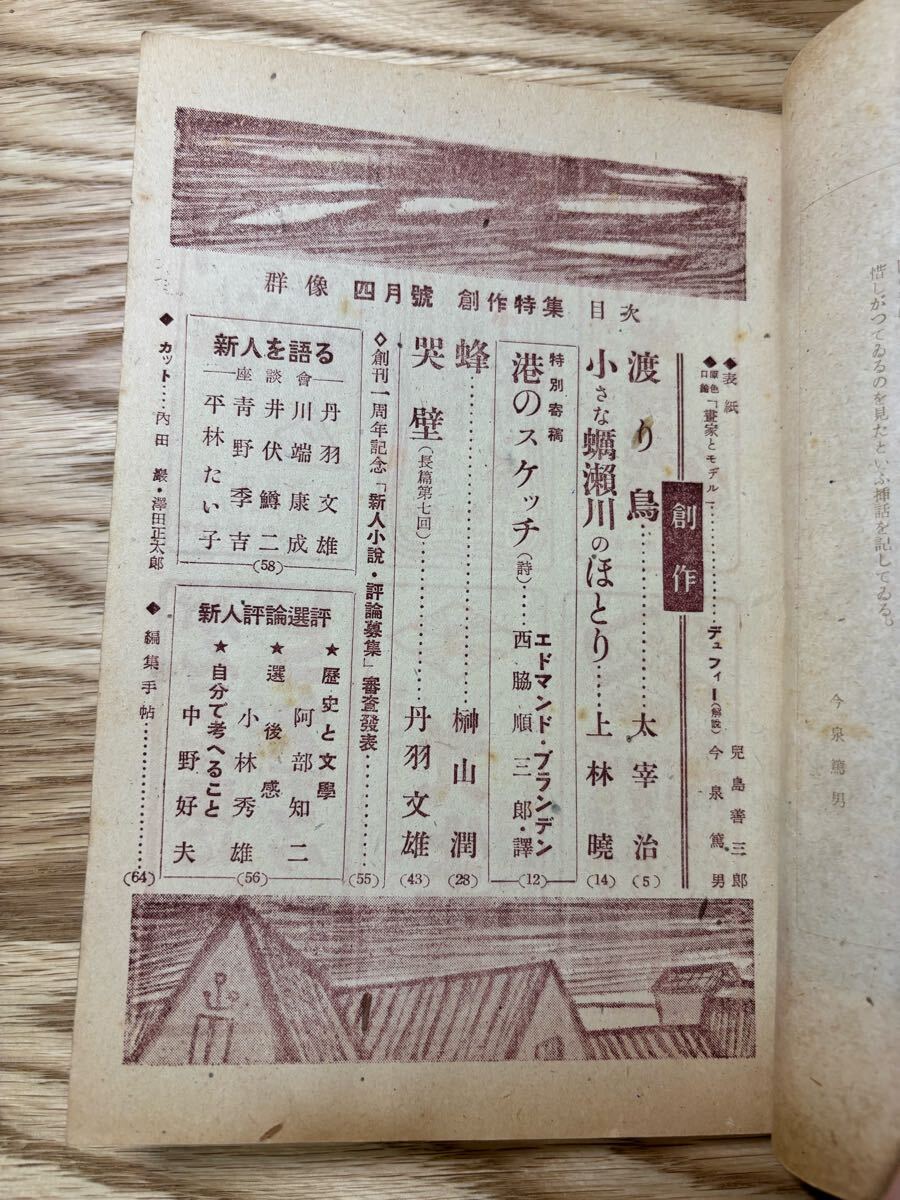 群像 四月號 創作特集 目次
◆表紙 兒島善三郎
◆原色口繪「畫家とモデル」………デュフィー(解説)今泉篤男
創作
渡り鳥………太宰治(5)
小さな蠣瀬川のほとり……上林曉(14)
特別寄稿
港のスケッチ(詩)……エドマンド・ブランデン
西脇順三郎・譯(12)
蜂………榊山潤(28)
哭壁(長篇第七回)………丹羽文雄(43)
◇創刊一周年記念「新人小説・評論募集」審査發表………(55)
新人を語る
―座談會―
丹羽文雄
川端康成
井伏鱒二
青野季吉
平林たい子
(58)
新人評論選評
★歷史と文學
阿部知二
★選後感
小林秀雄
★自分で考へること
中野好夫
(56)
◆カット……内田巖・澤田正太郎
◆編集手帖………(64)
惜しがつてゐるのを見たといふ挿話を記してゐる。
今泉篤男